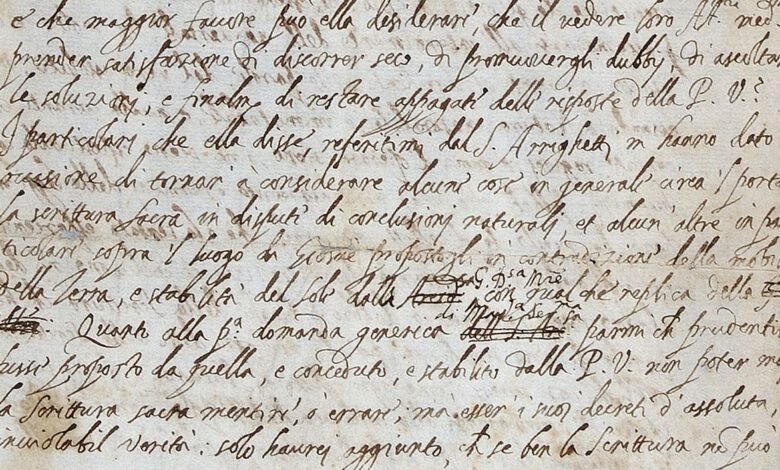 e che maggior favore può ella desiderare, che il vedere loro At. med
prender satisfazione di discorrer seco, di promuovergli dubbij, di ascoltar
le soluzioni, e finalm di restare appagate delle risposte della P. V.?
I particolari che ella disse, referitimi dal S. Arrighetti m hanno dato
occasione di tornar à considerare alcune cose in generale circa 'l porta
la scrittura sacra in dispute di conclusioni naturali, et alcun' altre in par
ticolari sopra 'l luogo di Giosuè propostogli in contradizione della mobil
della Terra, e stabilità del Sole dalla G. D.sa M.re con qualche replica della
di M. Ser.sa
Quanto alla p.a domanda generica parmi ch prudentiss
fusse proposto da quella, e conceduto, e stabilito dalla P. V. non poter mai
la scrittura sacra mentire, ò errare; mà esser i suoi decreti d'assoluta,
inviolabil verità: solo haurei aggiunto, ch se ben la Scrittura nò può